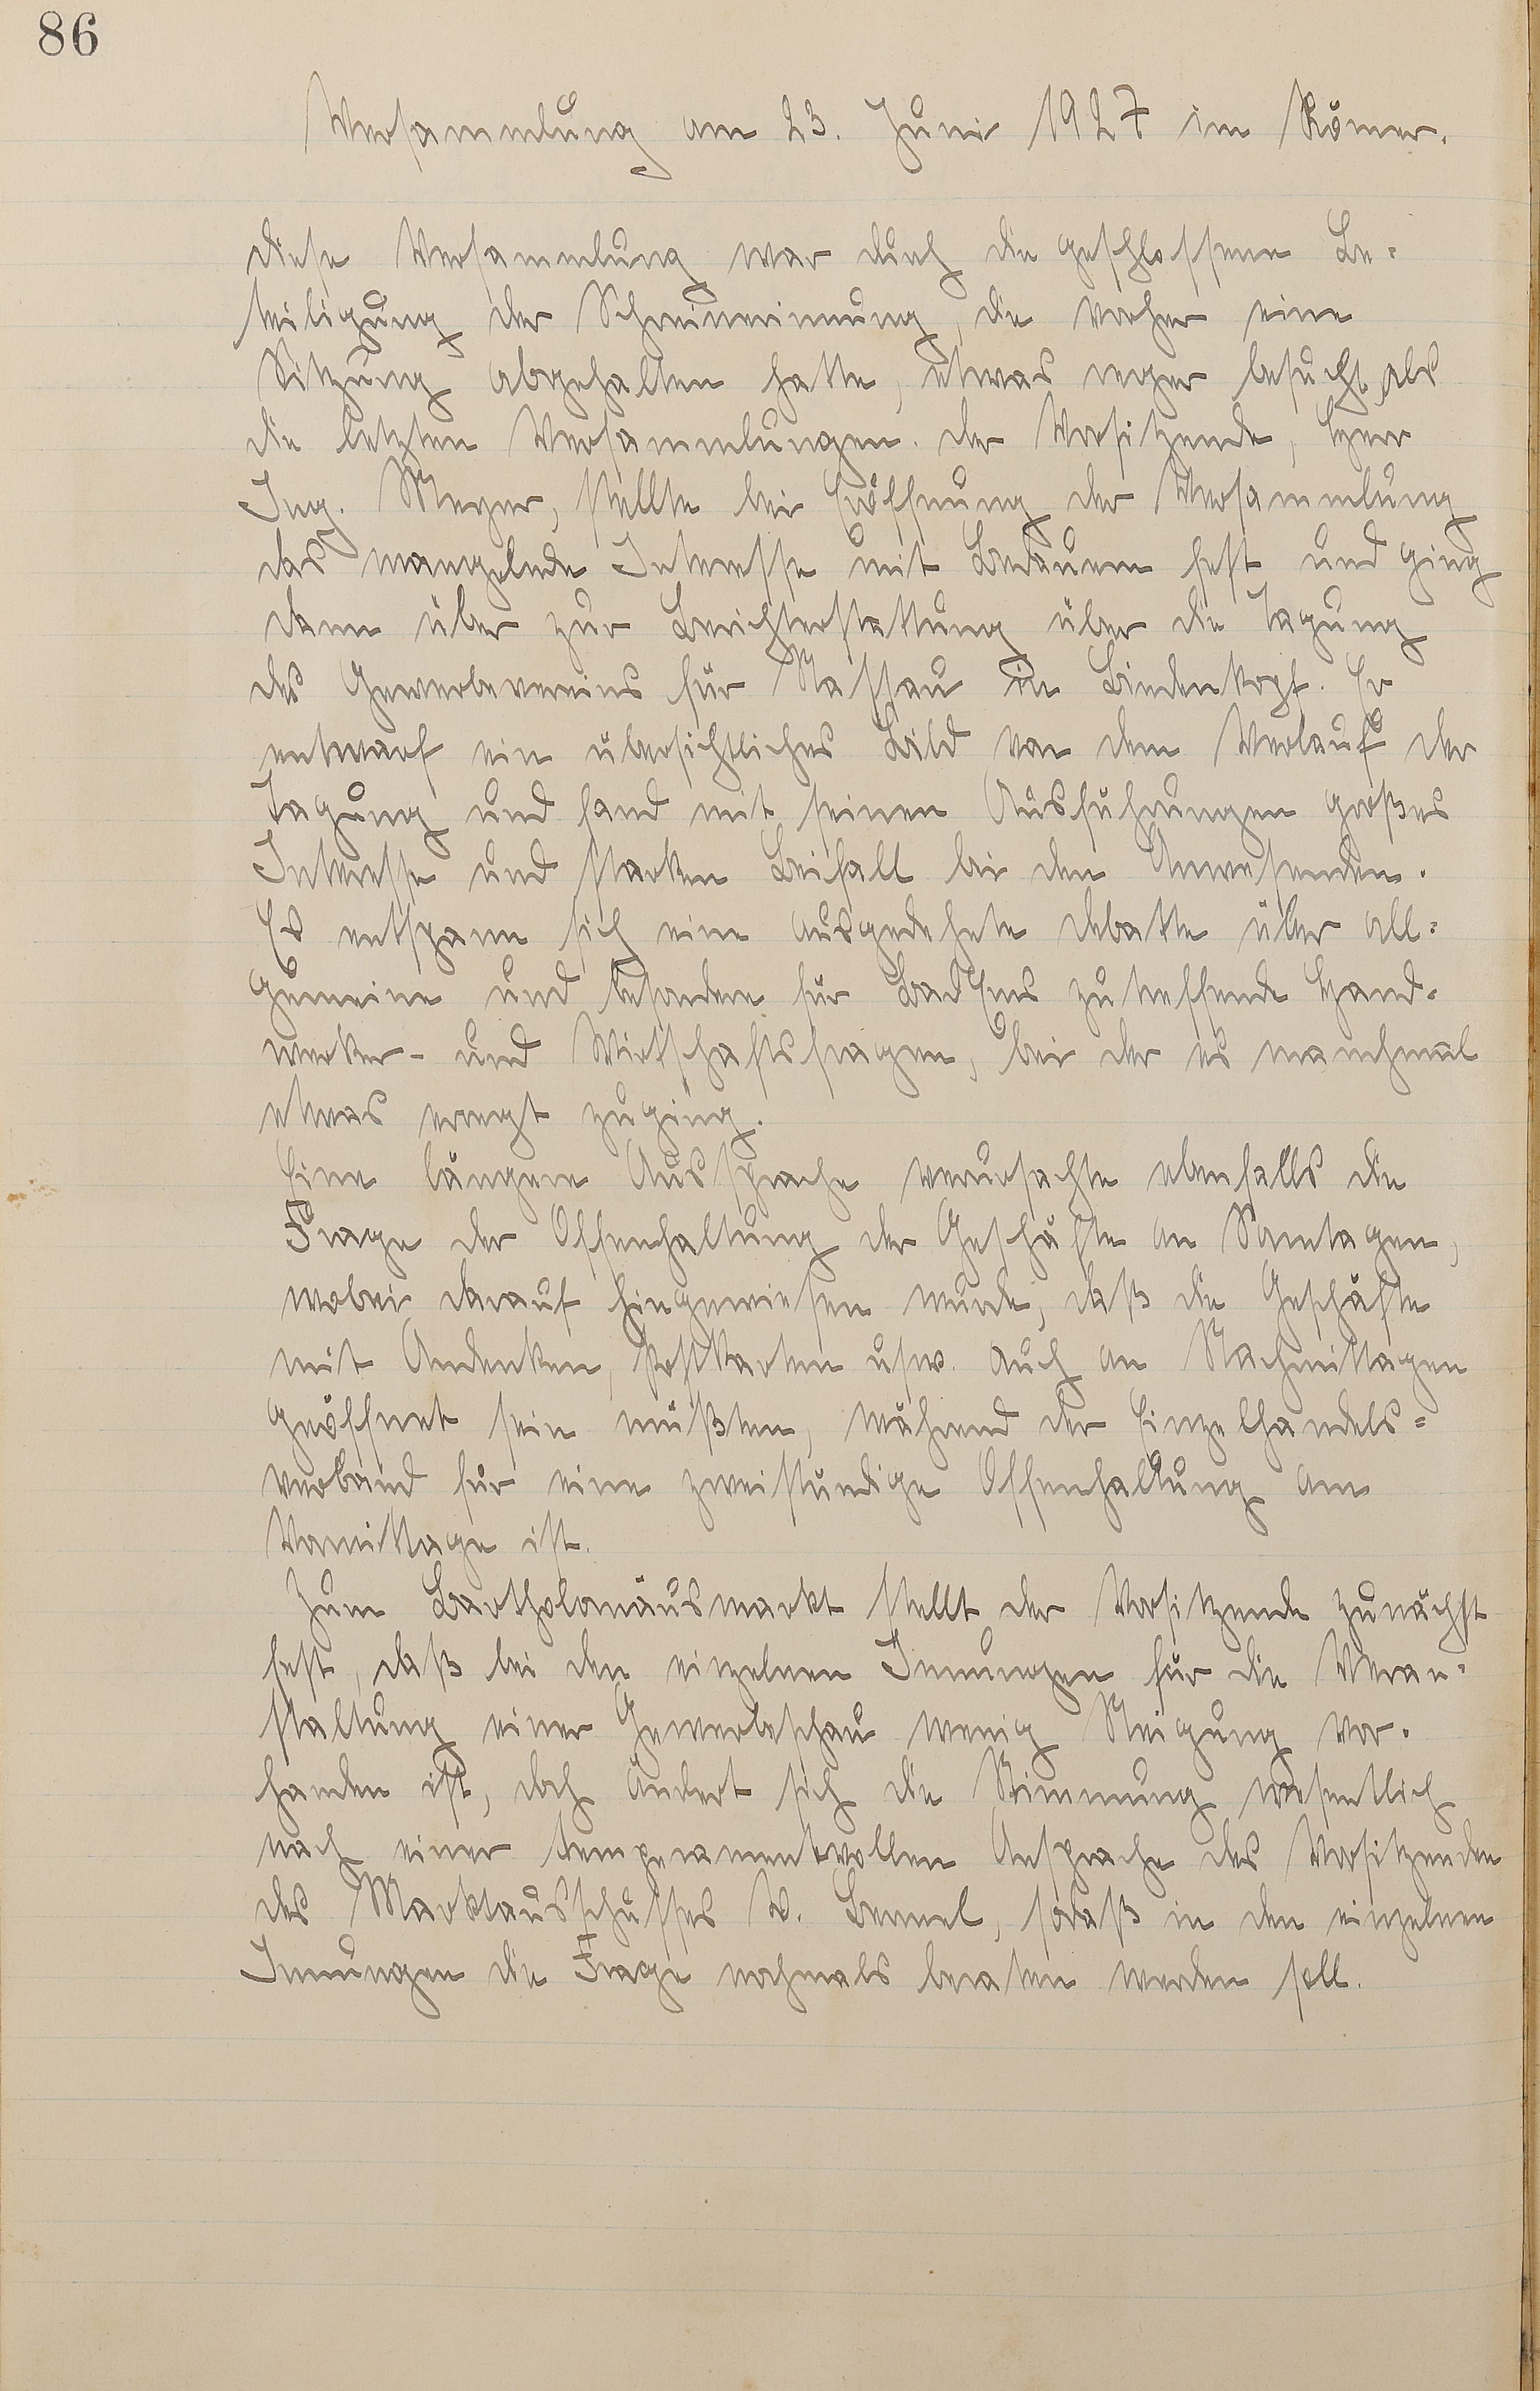 86
Versammlung am 23. Juni 1927 im Römer.
Diese Versammlung war durch die geschlossene Be=
teiligung der Schreinerinnung, die vorher eine
Sitzung abgehalten hatte, etwas reger besucht als
die letzten Versammlungen. Der Vorsitzende, Herr
Ing. Meyer, stellte bei Eröffnung der Versammlung
das mangelnde Interesse mit Bedauern fest und ging
dann über zur Berichterstattung über die Tagung
des Gewerbevereins für Nassau in Biedenkopf. Er
entwarf ein übersichtliches Bild von dem Verlauf der
Tagung und fand mit seinen Ausführungen großes
Interesse und starken Beifall bei den Anwesenden.
Es entspann sich eine ausgedehnte Debatte über all=
gemeine und besondere für Bad Ems zutreffende Hand=
werker- und Wirtschaftsfragen, bei der es manchmal
etwas erregt zuging.
Eine längere Aussprache verursachte ebenfalls die
Frage der Offenhaltung der Geschäfte an Sonntagen,
wobei darauf hingewiesen wurde, daß die Geschäfte
mit Andenken, Postkarten usw. auch an Nachmittagen
geöffnet sein müßten, während der Einzelhandels=
verband für eine zweistündige Offenhaltung am
Vormittage ist.
Zum Bartholomäusmarkt stellt der Vorsitzende zunächst
fest, daß bei den einzelnen Innungen für die Veran=
staltung einer Gewerbeschau wenig Neigung vor=
handen ist, doch ändert sich die Stimmung wesentlich
nach einer temperamentvollen Ansprache des Vorsitzenden
des Marktausschusses W. , sodaß in den einzelnen
Innungen die Frage nochmals beraten werden soll.